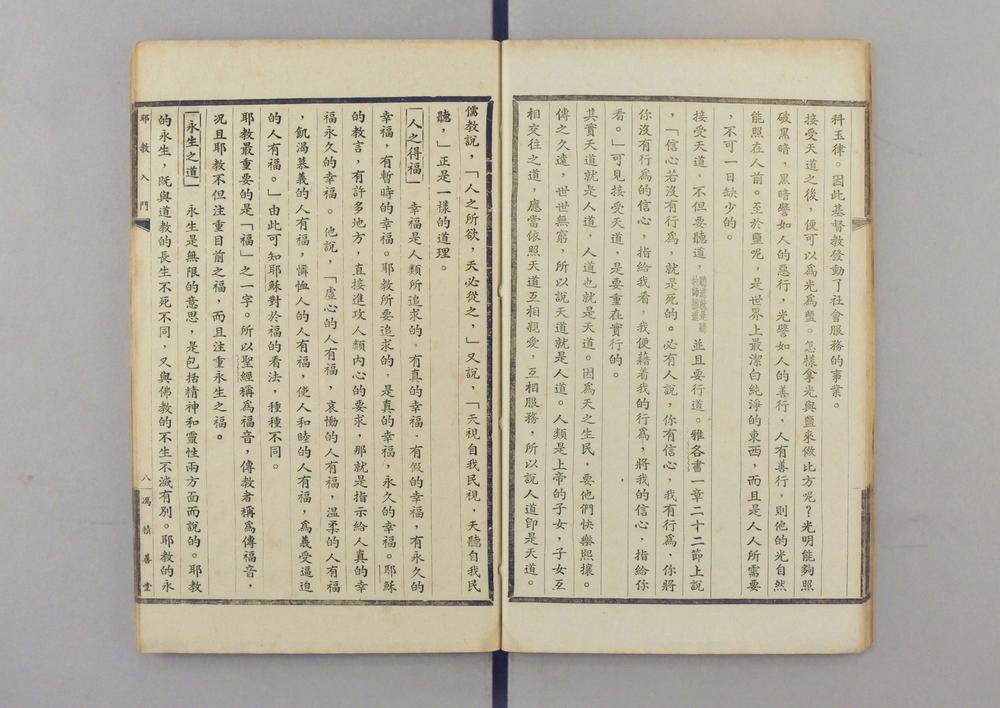 科玉律。因此基督教發動了社會服務的事業。
接受天道之後，便可以為光為鹽。怎樣拿光與鹽來做比方呢？光明能夠照
破黑暗，黑暗譬如人的惡行，光譬如人的善行，人有善行，則他的光自然
能照在人前。至於鹽呢，是世界上最潔白純淨的東西，而且是人人所需要
，不可一日缺少的。
接受天道，不但要聽道，並且要行道。雅各書一章二十二節上說
，「信心若沒有行為，就是死的。必有人說，你有信心，我有行為，你將
你沒有行為的信心，指給我看，我便藉着我的行為，將我的信心，指給你
看。」可見接受天道，是要重在實行的。
其實天道就是人道，人道也就是天道。因為天之生民，要他們快樂熙攘。
傳之久遠，世世無窮，所以說天道就是人道。人類是上帝的子女，子女互
相交往之道，應當依照天道互相親愛，互相服務，所以說人道卽是天道。
儒教說，「人之所欲，天必從之，」又說，「天視自我民視，天聽自我民
聽，」正是一樣的道理。
「人之得福」　幸福是人類所追求的。有真的幸福，有假的幸福，有永久的
幸福，有暫時的幸福。耶教所要追求的，是真的幸福，永久的幸福。耶穌
的教言，有許多地方，直接進攻人類內心的要求，那就是指示給人真的幸
福永久的幸福。他說，「虛心的人有福，哀慟的人有福，溫柔的人有福
，飢渴慕義的人有福，憐恤人的人有福，使人和睦的人有福，為義受逼迫
的人有福。」由此可知耶穌對於福的看法，種種不同。
耶教最重要的是「福」之一字。所以聖經稱為福音，傳教者稱為傳福音，
況且耶教不但注重目前之福，而且注重永生之福。
「永生之道」　永生是無限的意思，是包括精神和靈性兩方面而說的。耶教
的永生，既與道教的長生不死不同，又與佛教的不生不滅有別。耶教的永
耶教入門
八
馮積善堂